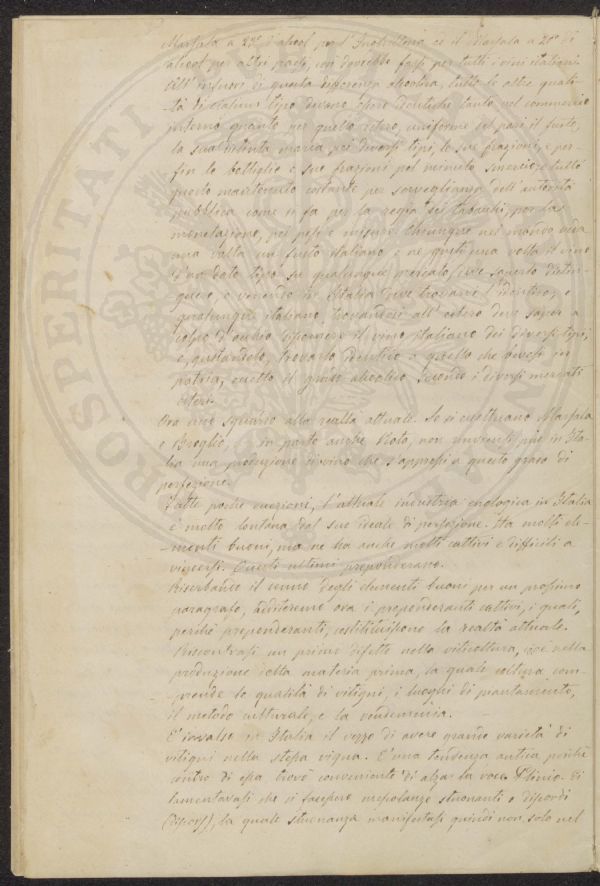 Marsala a 23° d'alcool per l'Inghilterra ed il Marsala a 20° di
alcool per altri paesi, così dovrebbe farsi per tutti i vini italiani.
All'infuori di questa differenza alcoolica, tutte le altre quali-
tà di ciascun tipo devono essere identiche tanto nel commercio
interno quanto per quello estero, uniforme del pari il fusto,
la sua distinta marca pei diversi tipi, le sue frazioni, e per-
fin le bottiglie e sue frazioni pel minuto smercio: e tutto
questo mantenuto costante per sorveglianza dell'autorità
pubblica come si fa per la regia dei tabacchi, per la
monetazione, pei pesi e misure. Chiunque nel mondo veda
una volta un fusto italiano e ne gusti una volta il vino
d'un dato tipo su qualunque mercato, deve saperlo distin-
guere, e venendo in Italia deve trovarvi l'identico, e
qualunque italiano trovandosi all'estero deve saper a
colpo d'occhio discernere il vino italiano dei diversi tipi,
e, gustandolo, trovarlo identico a quello che bevesi in
patria, eccetto il grado alcoolico secondo i diversi mercati
esteri.
Ora uno sguardo alla realtà attuale. Se si eccettuano Marsala
e Broglio, e in parte anche Noto, non rinviensi più in Ita-
lia una produzione di vino che s'appressi a questo grado di
perfezione.
Fatte poche eccezioni, l'attuale industria enologica in Italia
è molto lontana dal suo ideale di perfezione. Ha molti ele-
menti buoni, ma ne ha anche molti cattivi e difficili a
vincersi. Questi ultimi preponderano.
Riserbando il cenno degli elementi buoni per un prossimo
paragrafo, additeremo ora i preponderanti cattivi, i quali,
perchè preponderanti, costituiscono la realtà attuale.
Riscontrasi un primo difetto nella viticoltura, cioè nella
produzione della materia prima, la quale coltura com-
prende le qualità di vitigni, i luoghi di piantamento,
il metodo culturale, e la vendemmia.
È invalso in Italia il vezzo di avere grande varietà di
vitigni nella stessa vigna. È una tendenza antica poichè
contro di essa trovò conveniente di alzar la voce Plinio. Ei
lamentavasi che si facessero mescolanze stuonanti o discordi
(discors), la quale stuonanza manifestasi quindi non solo nel
PROSPERITATI